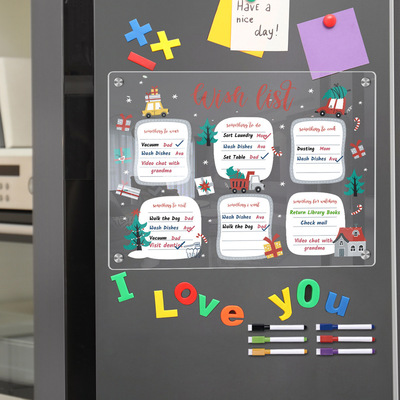 Have a
nice
day!
Wish list
something to wear
Vacuum Dad
Wash Dishes Ava
Video chat with
grandma
something to do
Sort Laundry Mom
Wash Dishes Ava
Set Table Dad
something to cook
Dusting Mom
Wash Dishes Ava
something to read
Walk the Dog Dad
Wash Dishes Ava
Vacuum Dad
Visit dentist
something i want
Wash Dishes Ava
Walk the Dog Dad
something for watching
Return Library Books
Check mail
Video chat with
grandma
I Love you